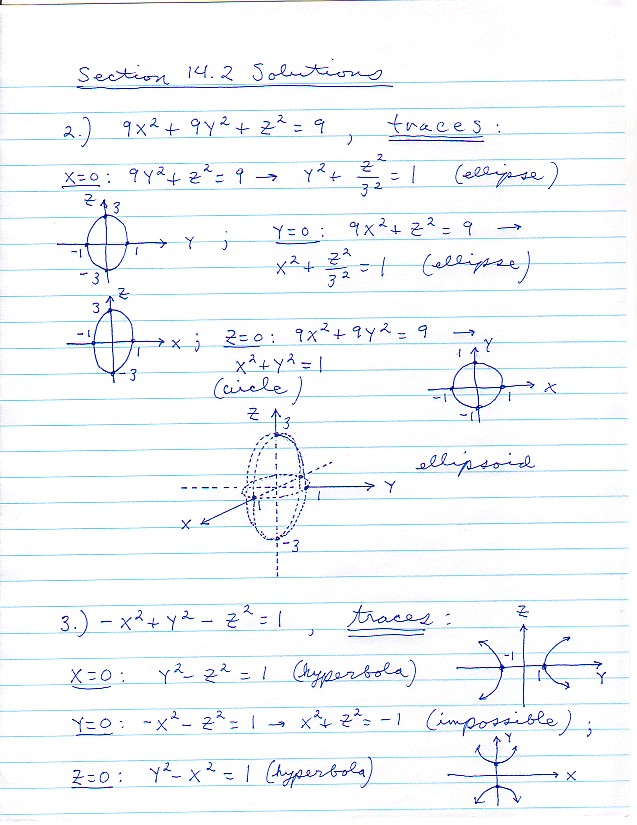 Section 14.2 Solutions
2.) 9x² + 9y² + z² = 9 , traces :
x=0 : 9y² + z² = 9 → y² + z²/3² = 1 (ellipse)
z 3
-1 1 y ; y=0 : 9x² + z² = 9 →
-3 x² + z²/3² = 1 (ellipse)
3 z
-1 1 x ; z=0 : 9x² + 9y² = 9 →
-3 x² + y² = 1
(circle)
1 y
-1 1 x
-1
z 3
ellipsoid
1 1 y
x
-3
3.) -x² + y² - z² = 1 , traces :
z
x=0 : y² - z² = 1 (hyperbola)
-1 1 y
y=0 : -x² - z² = 1 → x² + z² = -1 (impossible) ;
z=0 : y² - x² = 1 (hyperbola)
y
x